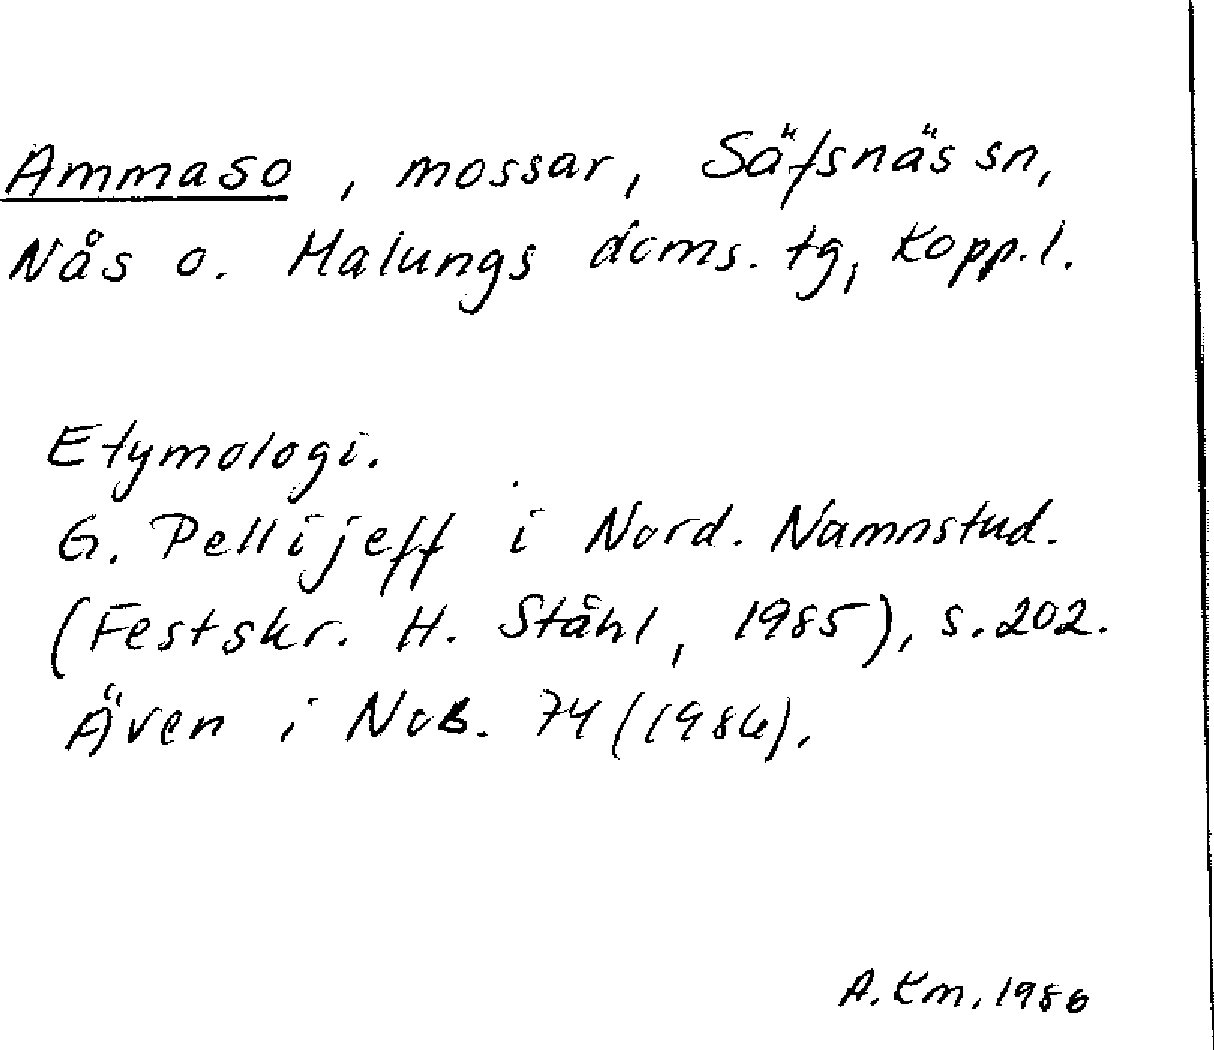 Ammaso, mossar, Säfsnäs sn,
Nås o. Malungs doms. tg, Kopp. l.
Etymologi.
G. Pellijeff i Nord. Namnstud.
(Festskr. H. Ståhl, 1985), s. 202.
Även i NoB. 74 (1986).
A. Km. 1986